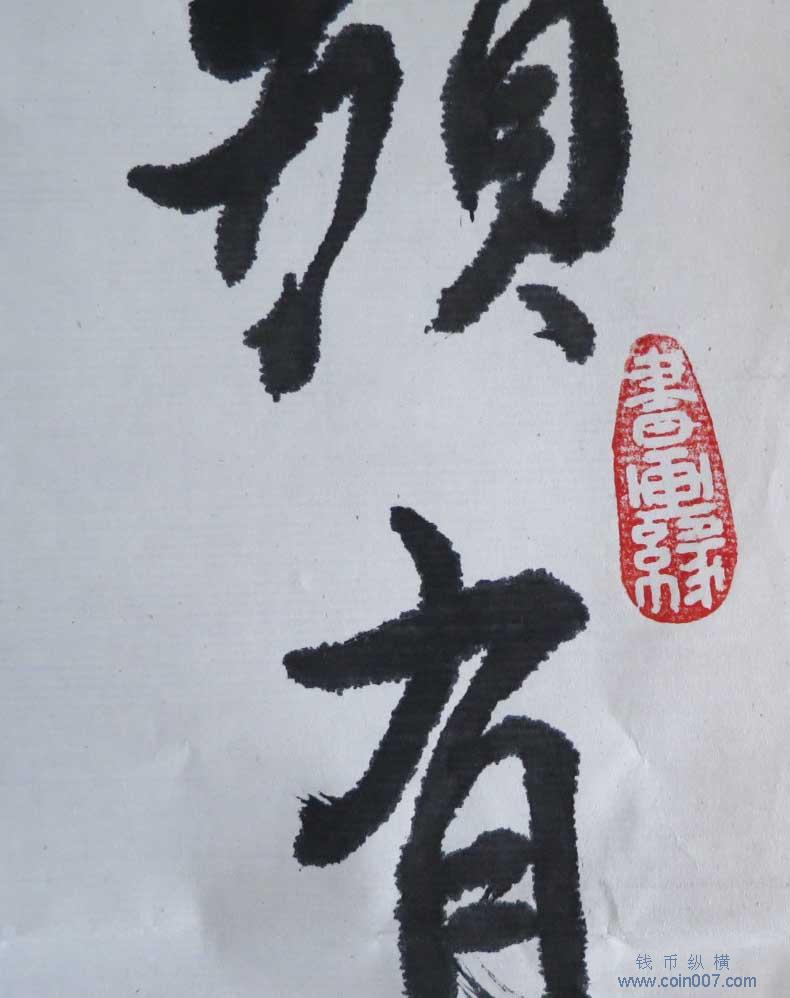 有
書畫緣
钱币纵横
www.coin007.com